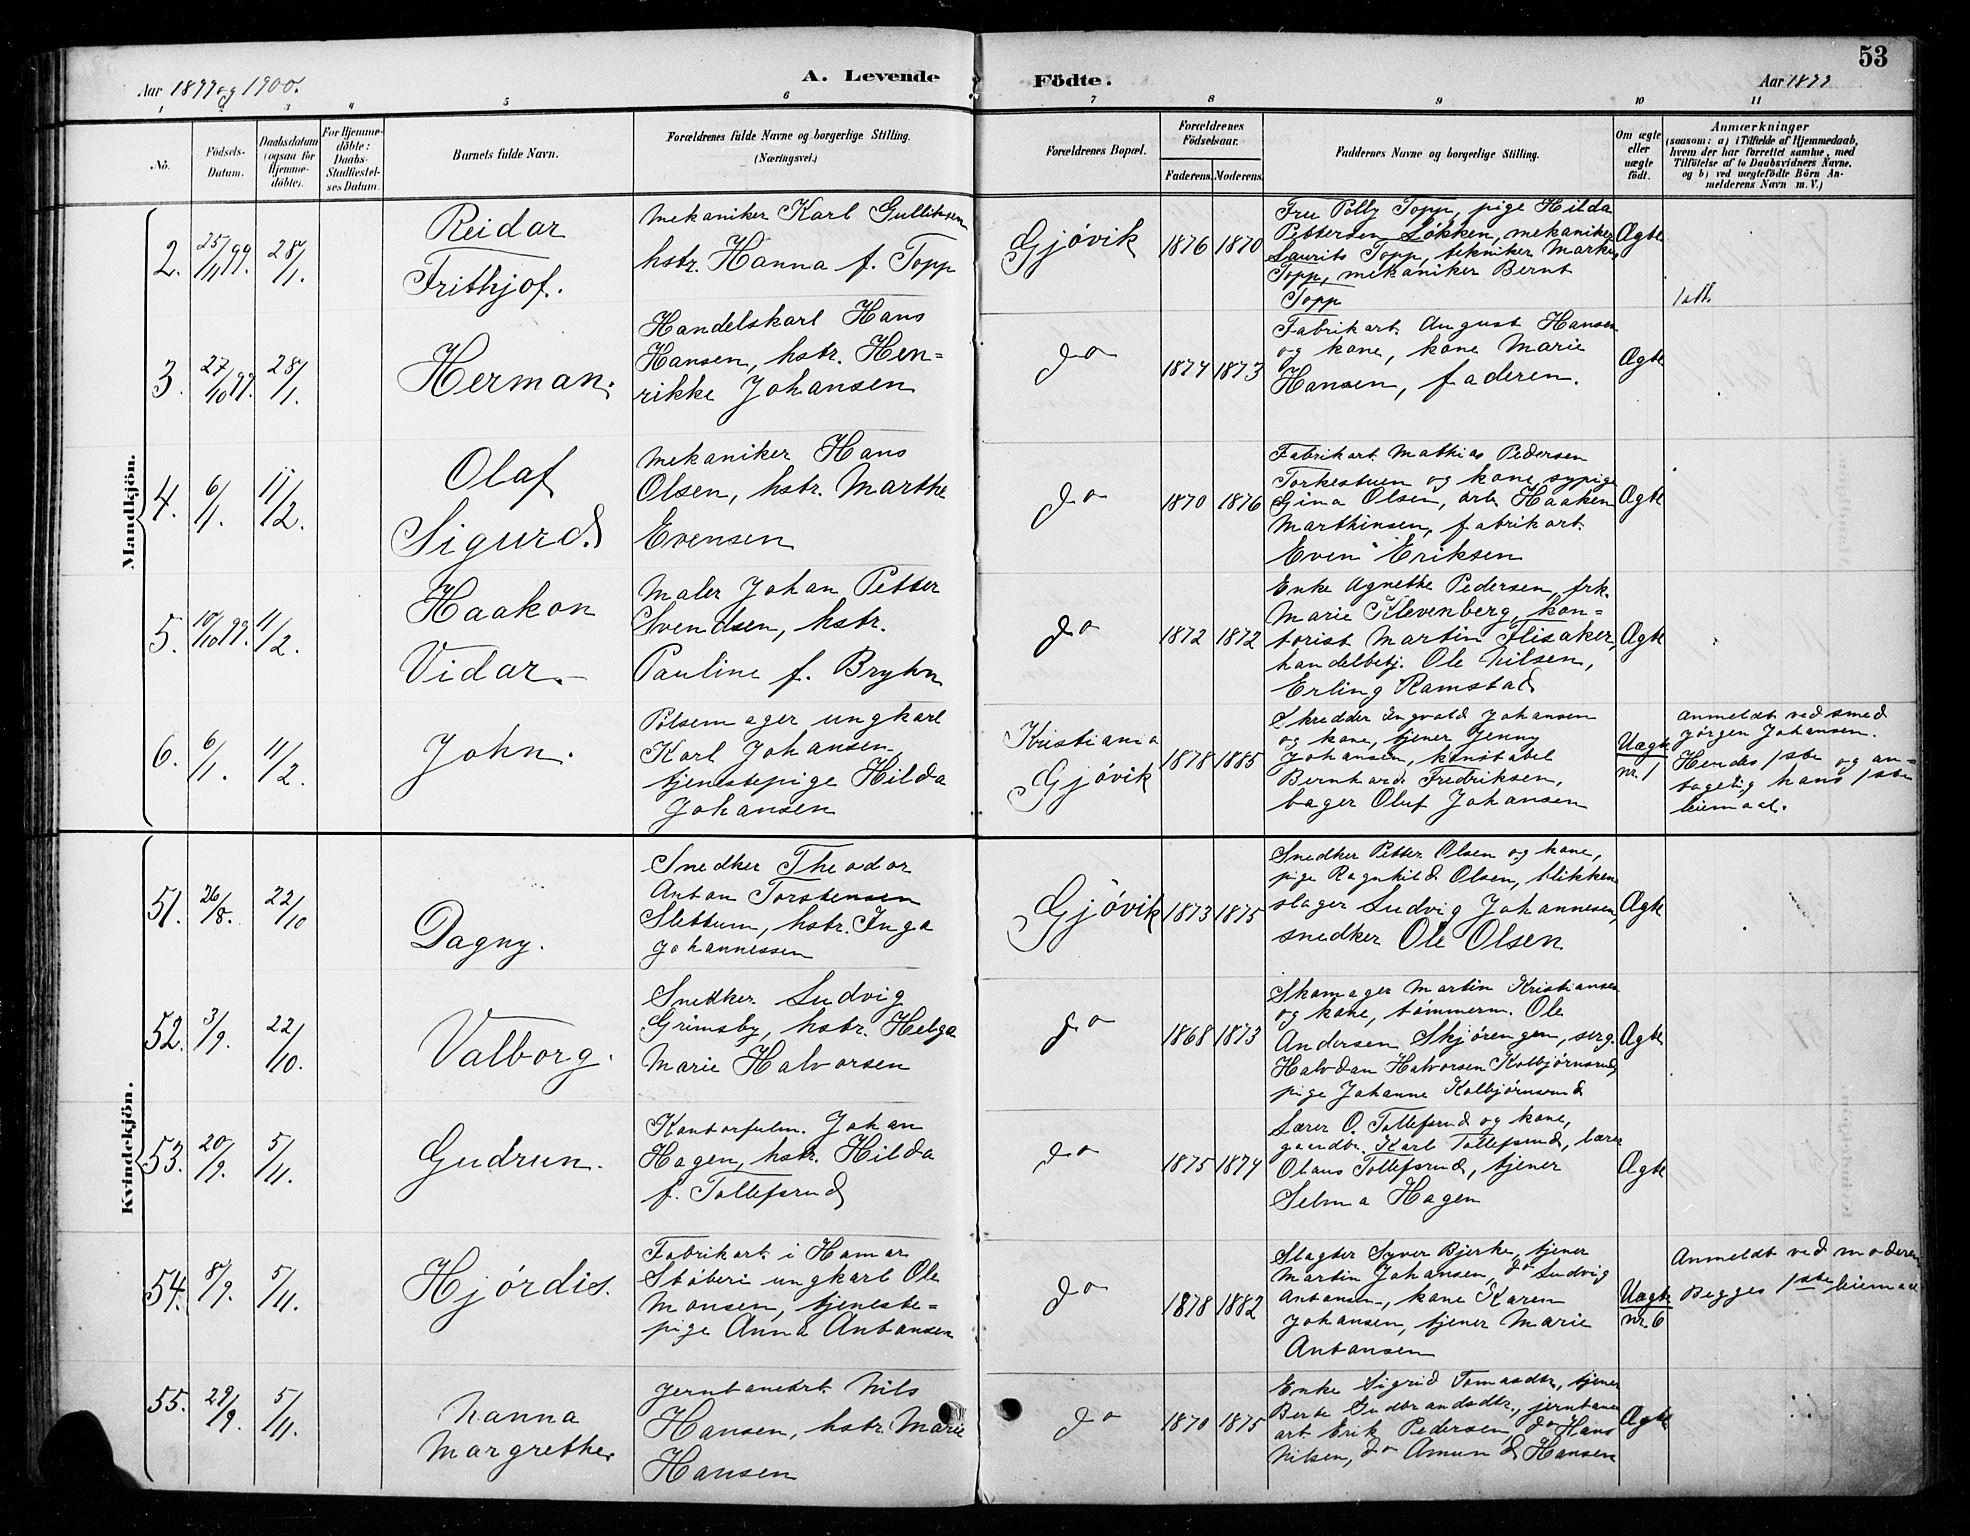 53
Aar 1899 og 1900.
A. Levende Födte.
Aar 1899
1 2 3 4 5 6 7 8 9 10 11
No.
Födsels-Datum.
Daabsdatum (ogsaa för Hjemme-döbte).
For Hjemme-döbte: Daabs-Stadfæstel-ses Datum.
Barnets fulde Navn.
Forældrenes fulde Navne og borgerlige Stilling.
(Næringsvei.)
Forældrenes Bopæl.
Forældrenes Födselsaar.
Faderens. Moderens.
Faddernes Navne og borgerlige Stilling.
Om ægte eller uægte födt.
Anmærkninger
(saasom: a) i Tilfælde af Hjemmedaab, hvem der har forrettet samme, med Tilföielse af to Daabsvidners Navne. og b) ved uægtefödte Börn An-melderens Navn m. V.)
Mandkjön.
2. 25/11 99. 28/1.
Reidar
Frithjof.
Mekaniker Karl Gulliksen
hstr. Hanna f. Topp
Gjövik
1876 1870
Fru Polly Topp, pige Hilda
Pettersen Løkken, mekaniker
Laurits Topp, tekniker Markus
Topp, mekaniker Bernt
Topp
Ægte
1 att.
3. 27/10 99. 28/1.
Herman.
Handelskarl Hans
Hansen, hstr. Hen-
rikke Johansen
do
1874 1873
Fabrikarb. August Hansen
og kone, kone Marie
Hansen, faderen.
Ægte
4. 6/1. 11/2.
Olaf
Sigurd.
Mekaniker Hans
Olsen, hstr. Marthe
Evensen
do
1870 1876
Fabrikarb. Mathias Pedersen
Torkestuen og kone, sypige
Gina Olsen, arb. Haaken
Marthinsen, fabrikarb.
Even Eriksen
Ægte
5. 10/10 99. 11/2.
Haakon
Vidar.
Maler Johan Petter
Svendsen, hstr.
Pauline f. Bryhn
do
1872 1872
Enke Agnethe Pedersen, frk.
Marie Klevenberg, kon-
torist Martin Flisaker,
handelbetj. Ole Nilsen,
Erling Ramstad
Ægte
6. 6/1. 11/2.
John.
Pølsemager ungkarl
Karl Johansen,
tjenestepige Hilda
Johansen
Kristiania
Gjövik
1878 1885
Skredder Ingvald Johansen
og kone, tjener Jenny
Johansen, konstabel
Bernhard Fredriksen,
bager Oluf Johansen
Uægte
nr. 1
Anmeldt ved smed
Jørgen Johansen.
Hendes 1ste og an-
tagelig hans 1ste
leiemaal.
Kvindekjön.
51. 26/8. 22/10
Dagny.
Snedker Theodor
Anton Torstensen
Slettum, hstr. Inga
Johannessen
Gjövik
1873 1875
Snedker Petter Olsen og kone,
pige Ragnhild Olsen, blikken
slager Ludvig Johannesen,
snedker Ole Olsen
Ægte
52. 3/9. 22/10.
Valborg.
Snedker Ludvig
Grimsby, hstr. Helga
Marie Halvorsen
do
1868 1873
Skomager Martin Kristiansen
og kone, tømmerm. Ole
Andersen Skjørengen, serg.
Halvdan Halvorsen Kolbjørnsrud,
pige Johanne Kolbjørnsrud
Ægte
53. 20/9. 5/11.
Gudrun.
Kontorfulm. Johan
Hagen, hstr. Hilda
f. Tollefsrud
do
1875 1874
Lærer O. Tollefsrud og kone,
gaardbr. Karl Tollefsrud, lærer
Olaus Tollefsrud, tjener
Selma Hagen
Ægte
54. 8/9. 5/11.
Hjördis.
Fabrikarb. i Hamar
Støberi ungkarl Ole
Monsen, tjeneste-
pige Anna Antonsen
do
1878 1882
Slagter Syver Bjerke, tjener
Martin Johansen, do Ludvig
Antonsen, kone Karen
Johansen, tjener Marie
Antonsen
Uægte
nr. 6
Anmeldt ved moderen
Begges 1ste leiemaal
55. 29/9. 5/11.
Nanna
Margrethe.
Jernbanearb. Nils
Hansen, hstr. Marie
Hansen
do
1870 1875
Enke Sigrid Tomasdtr., tjener
Berte Gudbrandsdtr., jernbane
arb. Erik Pedersen, do Hans
Nilsen, do Amund Hansen
Ægte